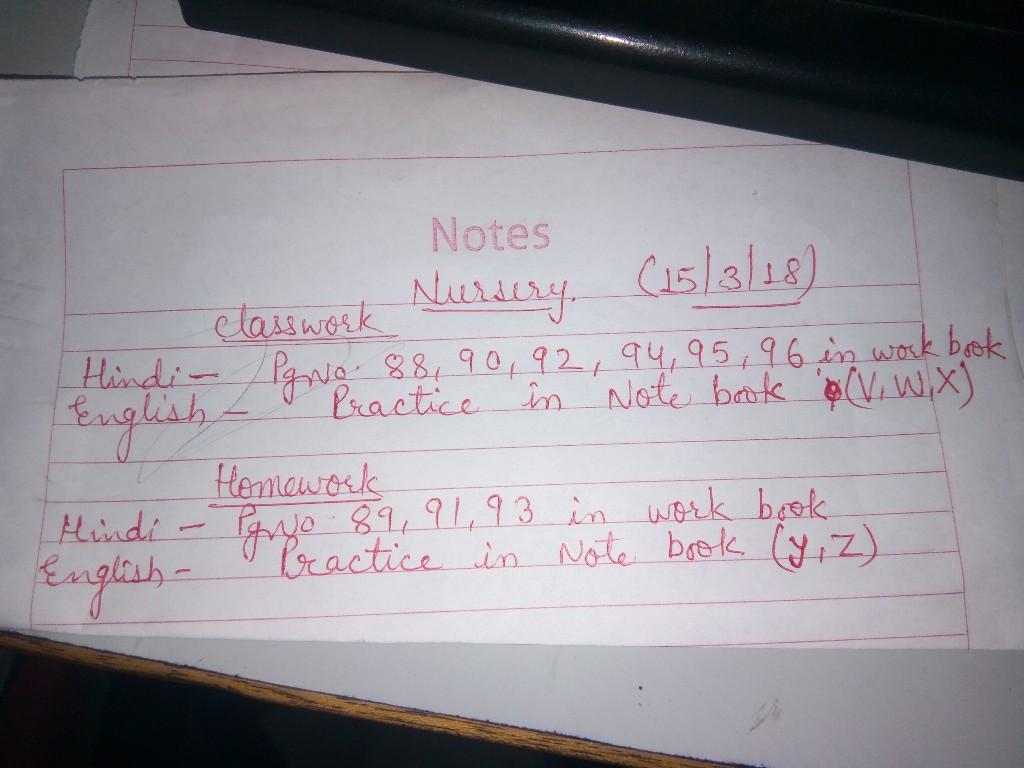 Notes
Nursery. (15/3/18)
classwork
Hindi - Pg No. 88, 90, 92, 94, 95, 96 in work book
English - Practice in Note book (V, W, X)
Homework
Hindi - Pg No. 89, 91, 93 in work book
English - Practice in Note book (y, Z)